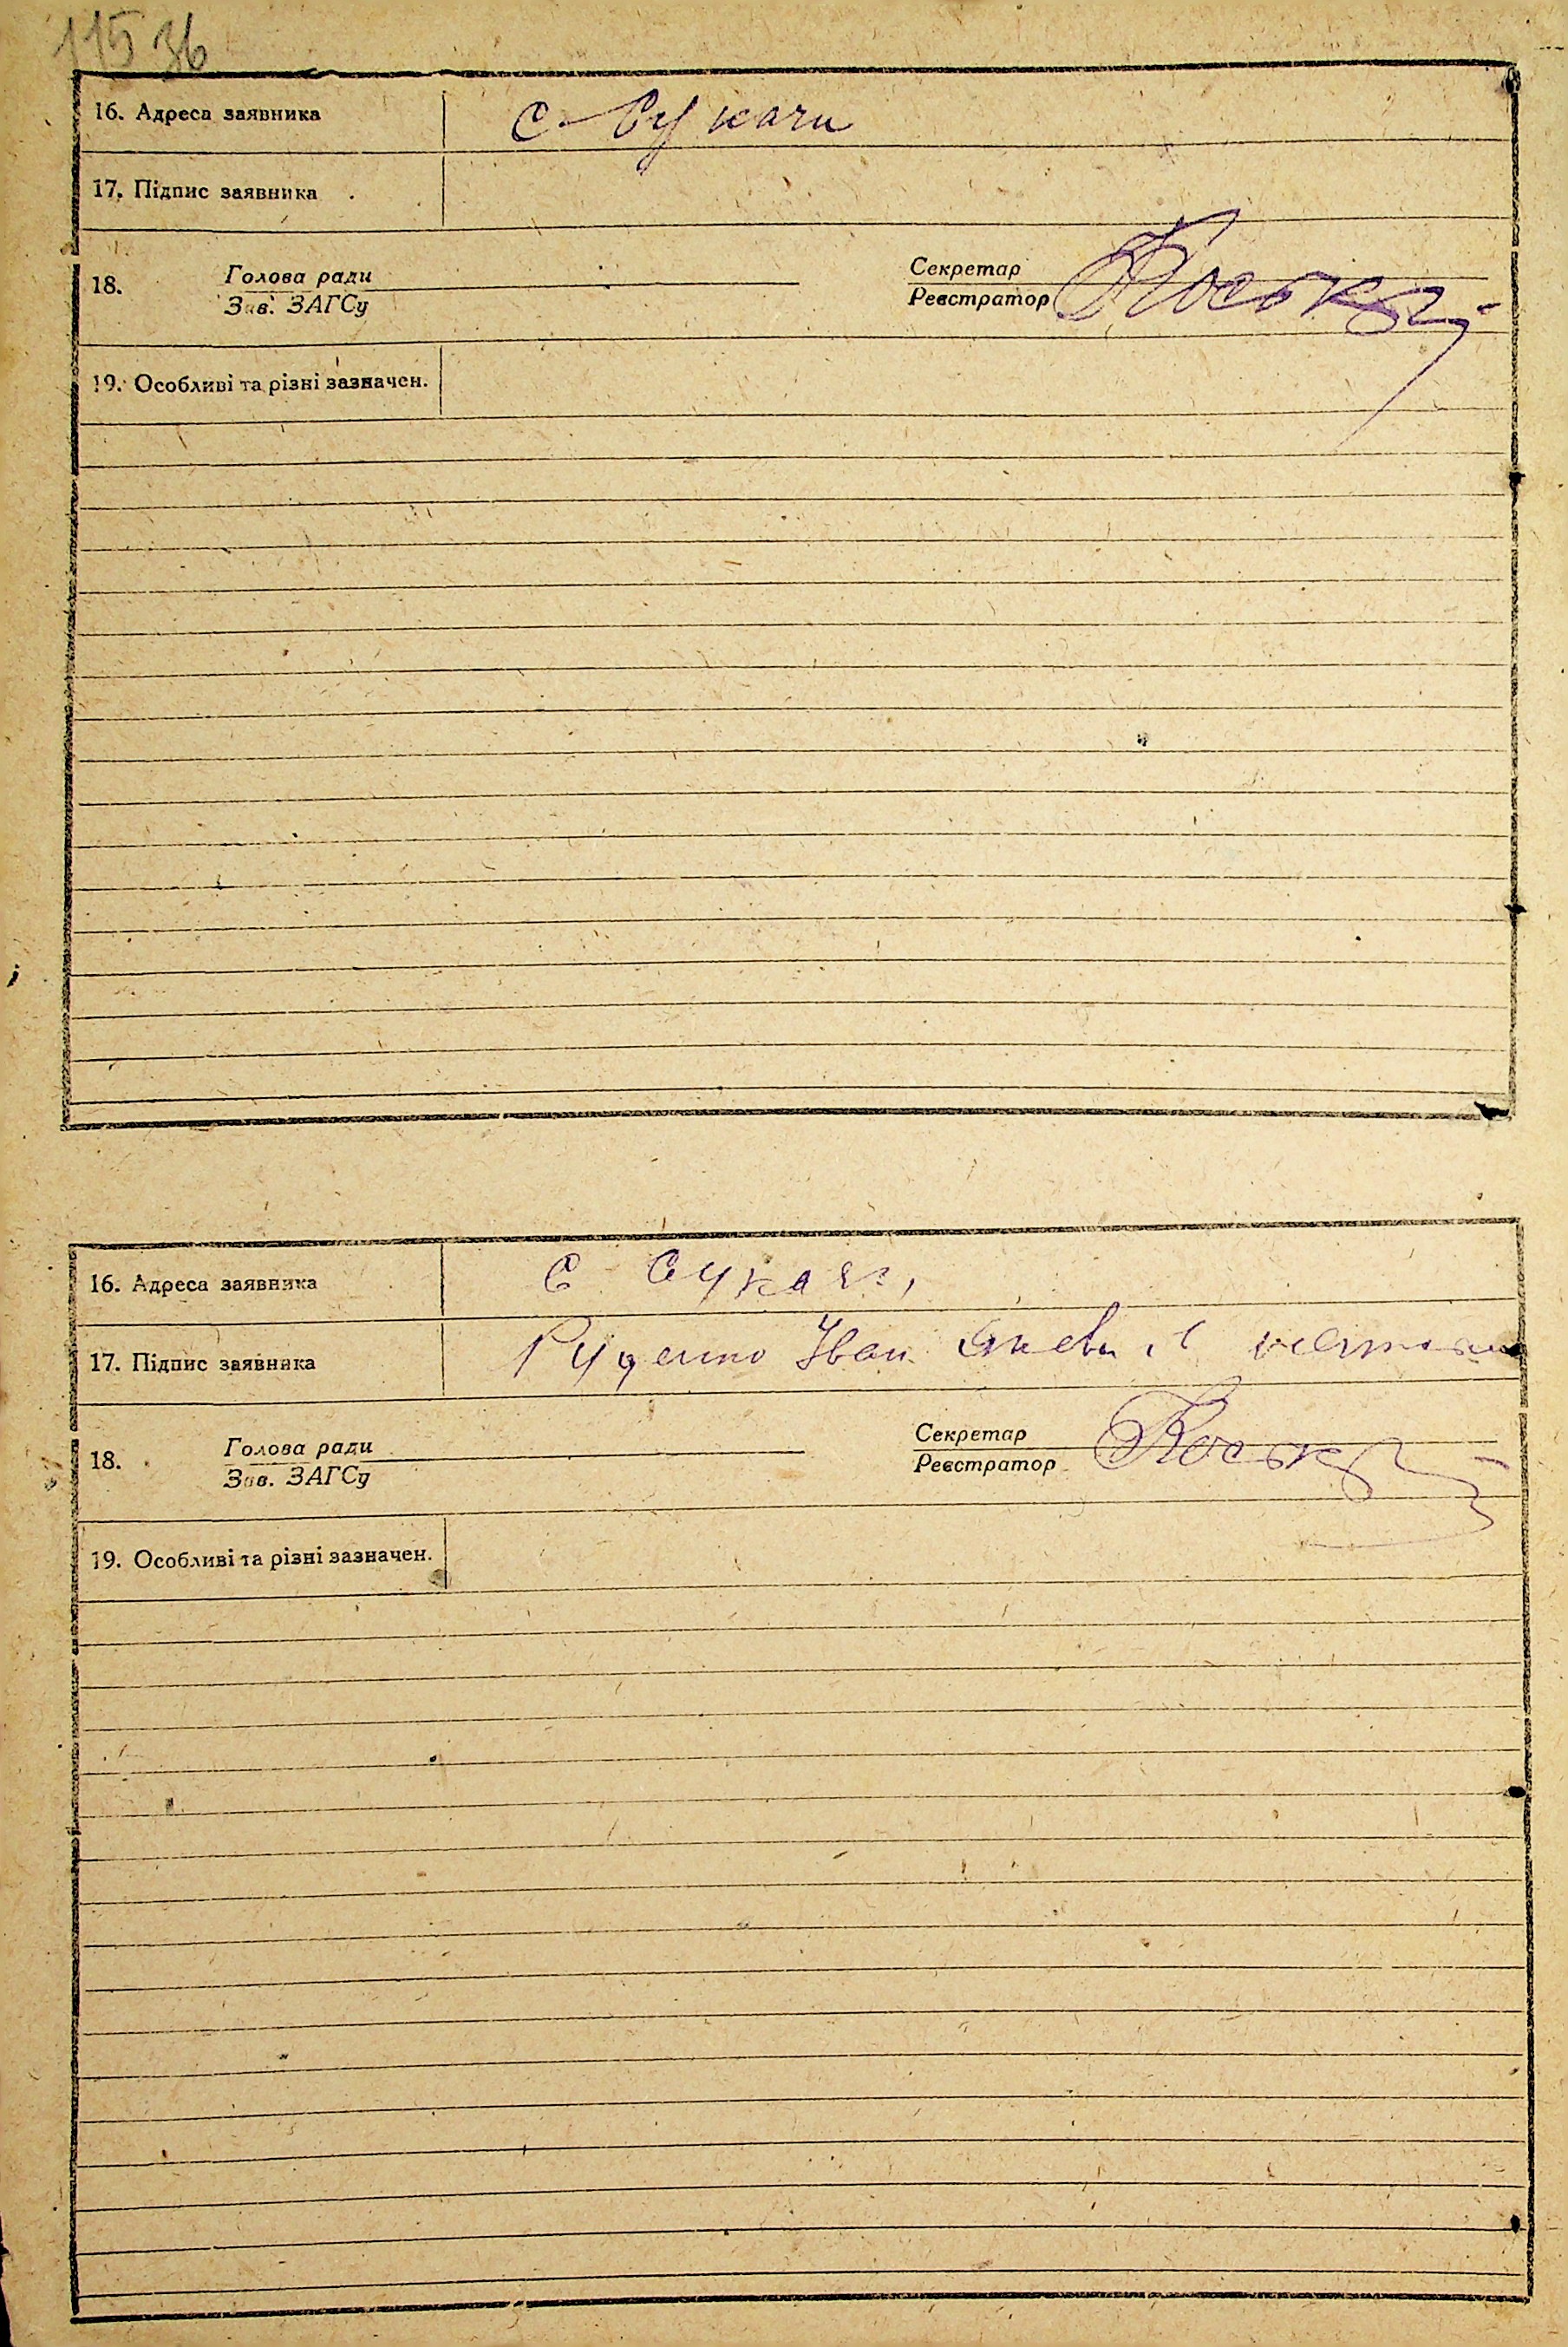 115 36
16. Адреса заявника с. Сукачи
17. Підпис заявника
18. Голова ради Секретар
Зав. ЗАГСу Реєстратор
19. Особливі та різні зазначен.
16. Адреса заявника с Сукачі
17. Підпис заявника Іван
18. Голова ради Секретар
Зав. ЗАГСу Реєстратор
19. Особливі та різні зазначен.